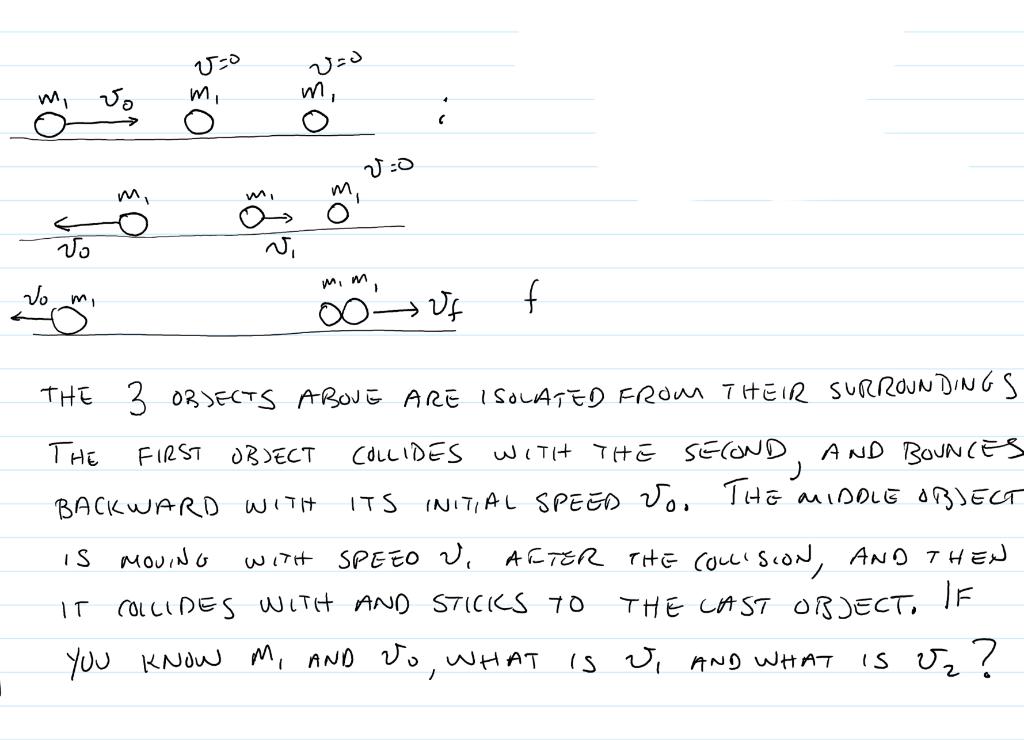 v=0 v=0
m₁ v₀ m₁ m₁ :
v=0
m₁ m₁ m₁
v₀ v₁
v₀ m₁ m₁ m₁ v_f f
THE 3 OBJECTS ABOVE ARE ISOLATED FROM THEIR SURROUNDINGS
THE FIRST OBJECT COLLIDES WITH THE SECOND, AND BOUNCES
BACKWARD WITH ITS INITIAL SPEED v₀. THE MIDDLE OBJECT
IS MOVING WITH SPEED v₁ AFTER THE COLLISION, AND THEN
IT COLLIDES WITH AND STICKS TO THE LAST OBJECT. IF
YOU KNOW m₁ AND v₀, WHAT IS v₁ AND WHAT IS v₂?